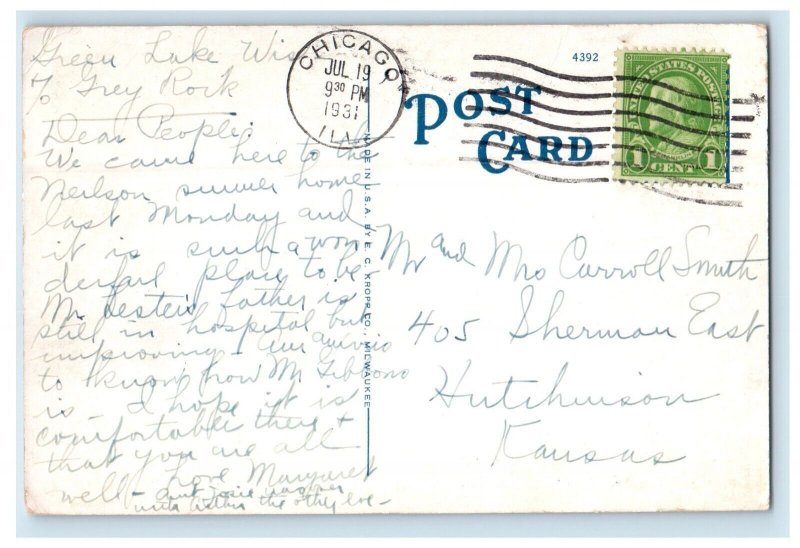 Green Lake Wis
% Grey Rock
Dear People,
We came here to the
Neilson summer home
last Monday and
it is such a won
derful place to be
Mr father is
still in hospital but
improving I am anxious
to know how Mr Gibbons
is - I hope it is
comfortable there +
that you are all
well - love Margaret
Aunt Josie
the other eve -
CHICAGO
JUL 19
9 30 PM
1931
ILL
4392
POST
CARD
UNITED STATES POSTAGE
FRANKLIN
1 CENT 1
MADE IN U.S.A. BY E. C. KROPP CO., MILWAUKEE
Mr and Mrs Carroll Smith
405 Sherman East
Hutchinson
Kansas